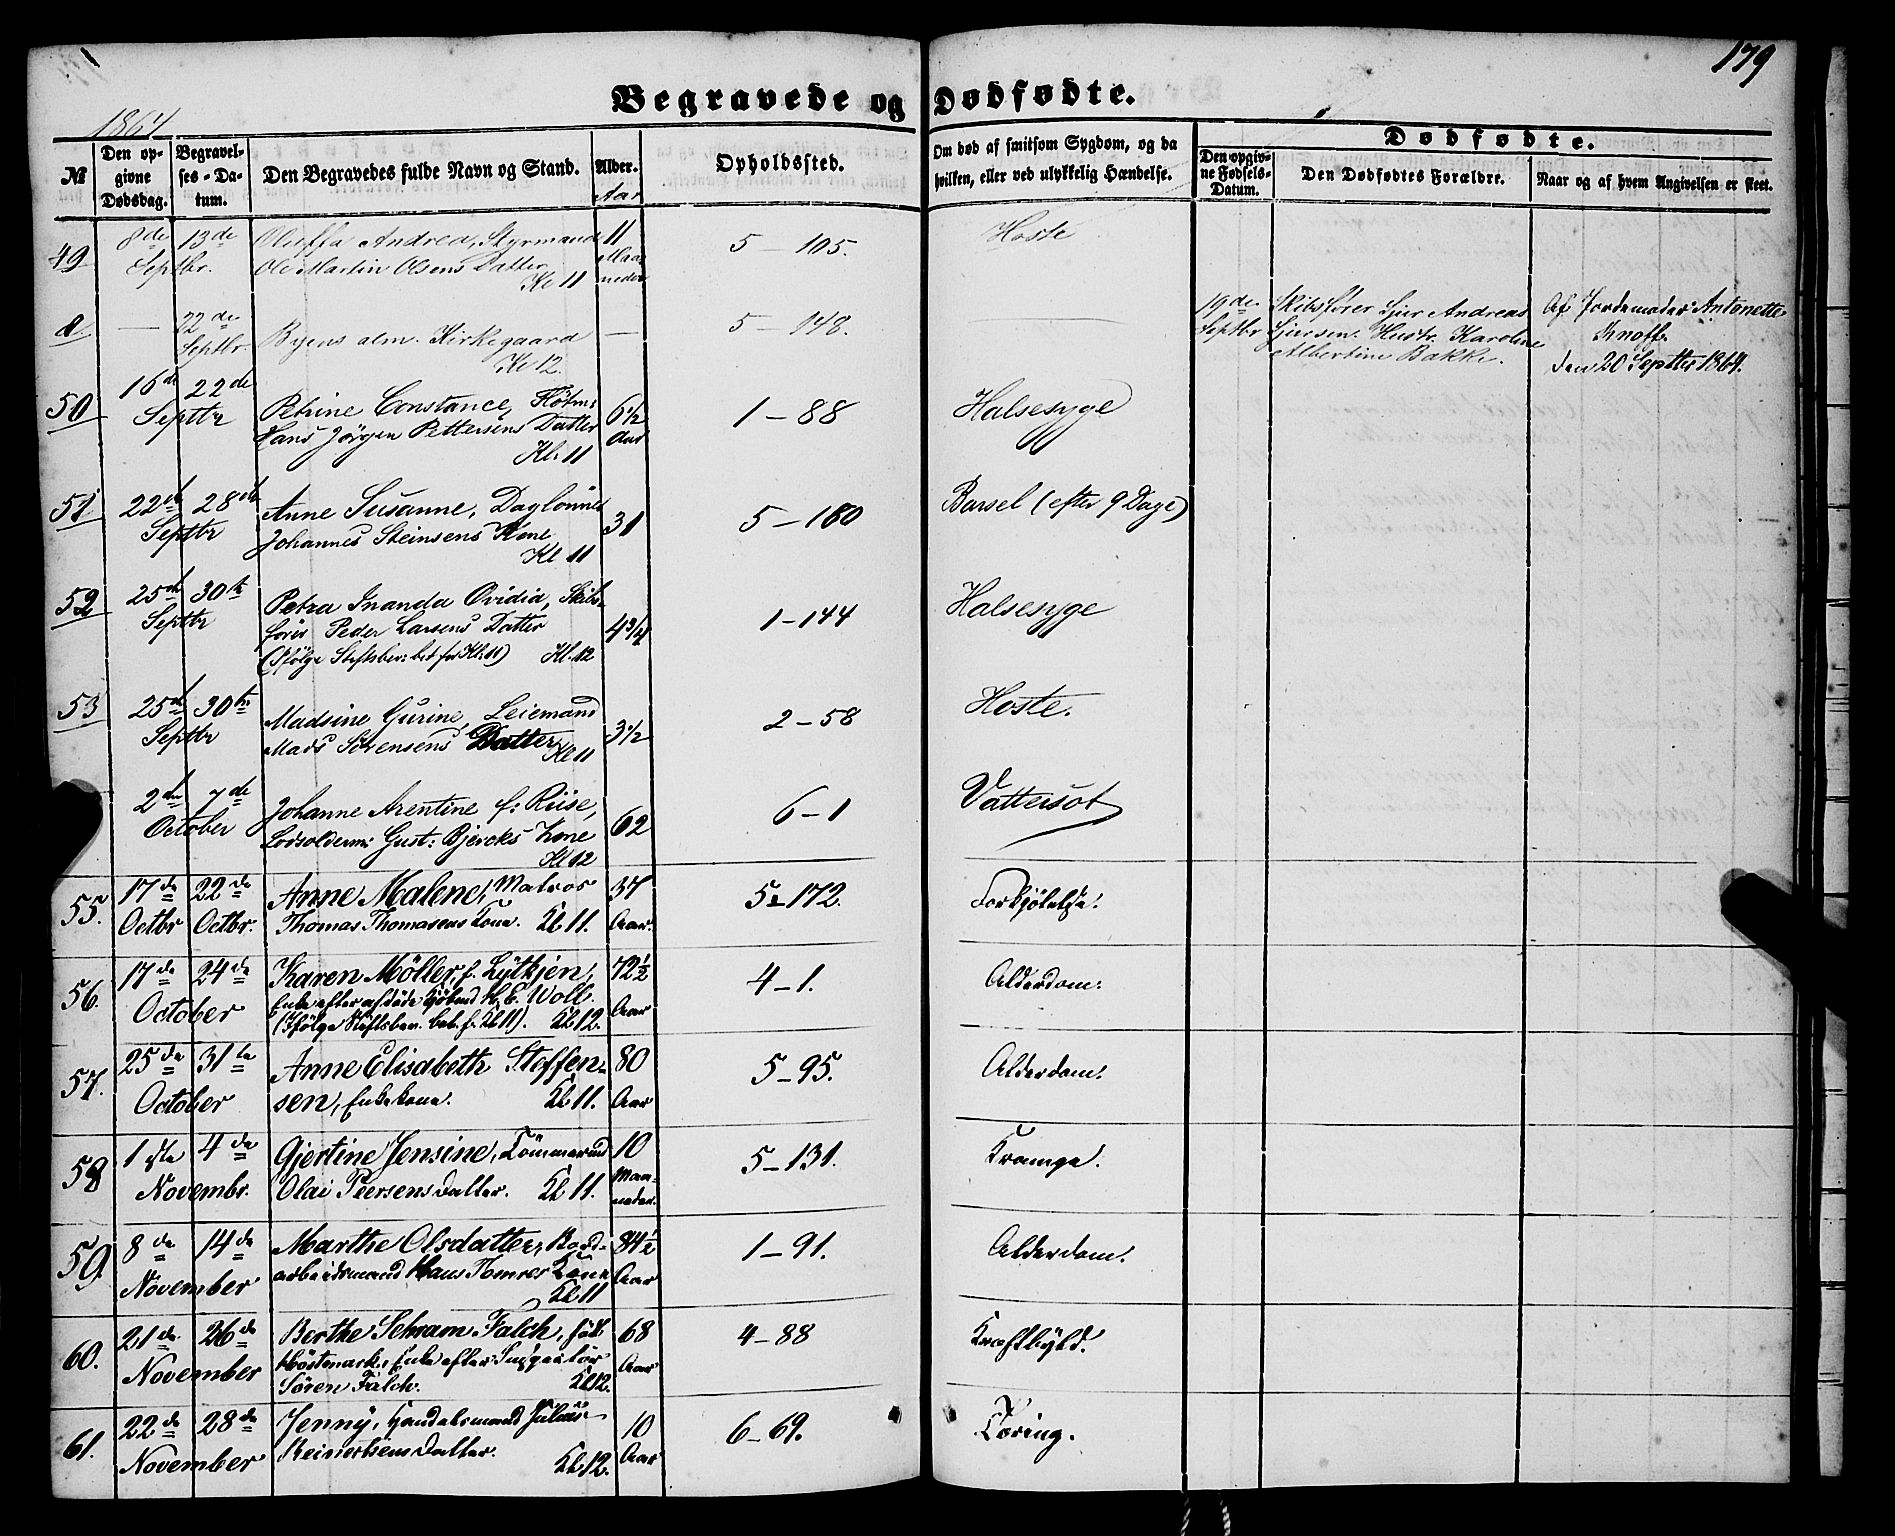 179
Begravede og Dødfødte.
1864
№
Den opgivne Dødsdag.
Begravelses-Datum.
Den Begravedes fulde Navn og Stand.
Alder.
Aar
Opholdssted.
Om død af smitsom Sygdom, og da hvilken, eller ved ulykkelig Hændelse.
Dødfødte.
Den opgivne Fødsels-Datum.
Den Dødfødtes Forældre.
Naar og af hvem Angivelsen er skeet.
49 8de 13de Oluffa Andrea, Styrmand 11 5 - 105. Hoste
Septbr. Ole Martin Olsens Datter Maa-
Kl 11 neder
a — 22de Byens alm. Kirkegaard — 5 - 148. —
Septbr. Kl 12.
19de Skibsfører Sjur Andreas Af Jordemoder Antonette
Septbr Sjursen. Hustr. Karoline Knoff.
Albertine Bakke. den 20 Septter 1864.
50 16de 22de Petrine Constance, Flötm: 6½ 1 - 88 Halsesyge
Septbr Hans Jörgen Pettersens Datter Aar
Kl. 11
51 22de 28de Anne Susanne, Daglönner 31 5 - 180 Barsel (efter 9 Dage)
Septbr Johannes Steinsens Kone
Kl 11
52 25de 30te Petra Inanda Ovidia, Skibs- 4¾ 1 - 144 Halsesyge
Septbr förer Peder Larsens Datter
(Ifölge Stiftsbev: bet for Kl. 11) Kl. 12
53 25de 30te Madsine Gurine, Leiemand 3½ 2 - 58 Hoste.
Septbr Mads Sörensens Datter
Kl 11
2den 7de Johanne Arentine f: Riise, 62 6 - 1 Vattersot
October Lodsolderm: Gust: Bjercks Kone
Kl 12
55. 17de 22de Anne Malene, Matros 37 5 - 172. Forkjølelse.
Octbr Octbr. Thomas Thomasens Kone. Kl 11. Aar.
56. 17de 24de Karen Möller, f. Lÿtkjen, 72½ 4 - 1. Alderdom.
October Enke efter afdøde Kjöbmd H. E. Woll. Aar
(Ifölge Stiftsbev. bet. f. Kl 11). Kl 12.
57. 25de 31te Anne Elisabeth Steffen- 80 5 - 95. Alderdom.
October sen, Enkekone. Kl 11. Aar
58 1ste 4de Gjertine Jensine, Tömmermd 10 5 - 131. Krampe.
Novembr. Olai Peersens Datter. Kl 11. Maa-
neder.
59. 8de 14de Marthe Olsdatter, Bord- 84½ 1 - 91. Alderdom.
November arbeidsmand Hans Tomres Kone Aar
Kl 11
60. 21de 26de Berthe Schram Falch, født 68 4 - 88 Kræftbÿld.
November Höstmark, Enke efter Inspectör Aar
Sören Falch. Kl 12.
61. 22de 28de Jenny, Handelsmand Julius 10 6 - 69. Tæring.
November Reinertsens Datter. Aar
Kl 12.